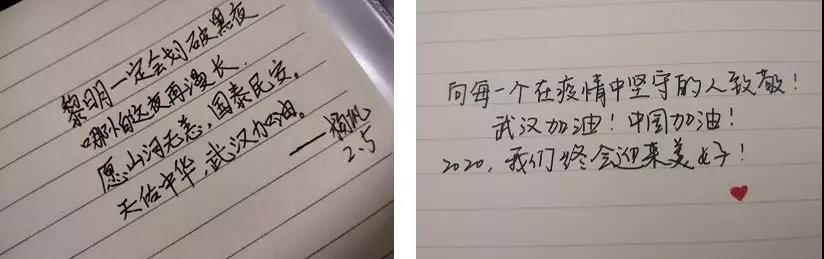 黎明一定会划破黑夜
哪怕这夜再漫长.
愿山河无恙，国泰民安。
天佑中华，武汉加油。
2.5
向每一个在疫情中坚守的人致敬！
武汉加油！中国加油！
2020，我们终会迎来美好！